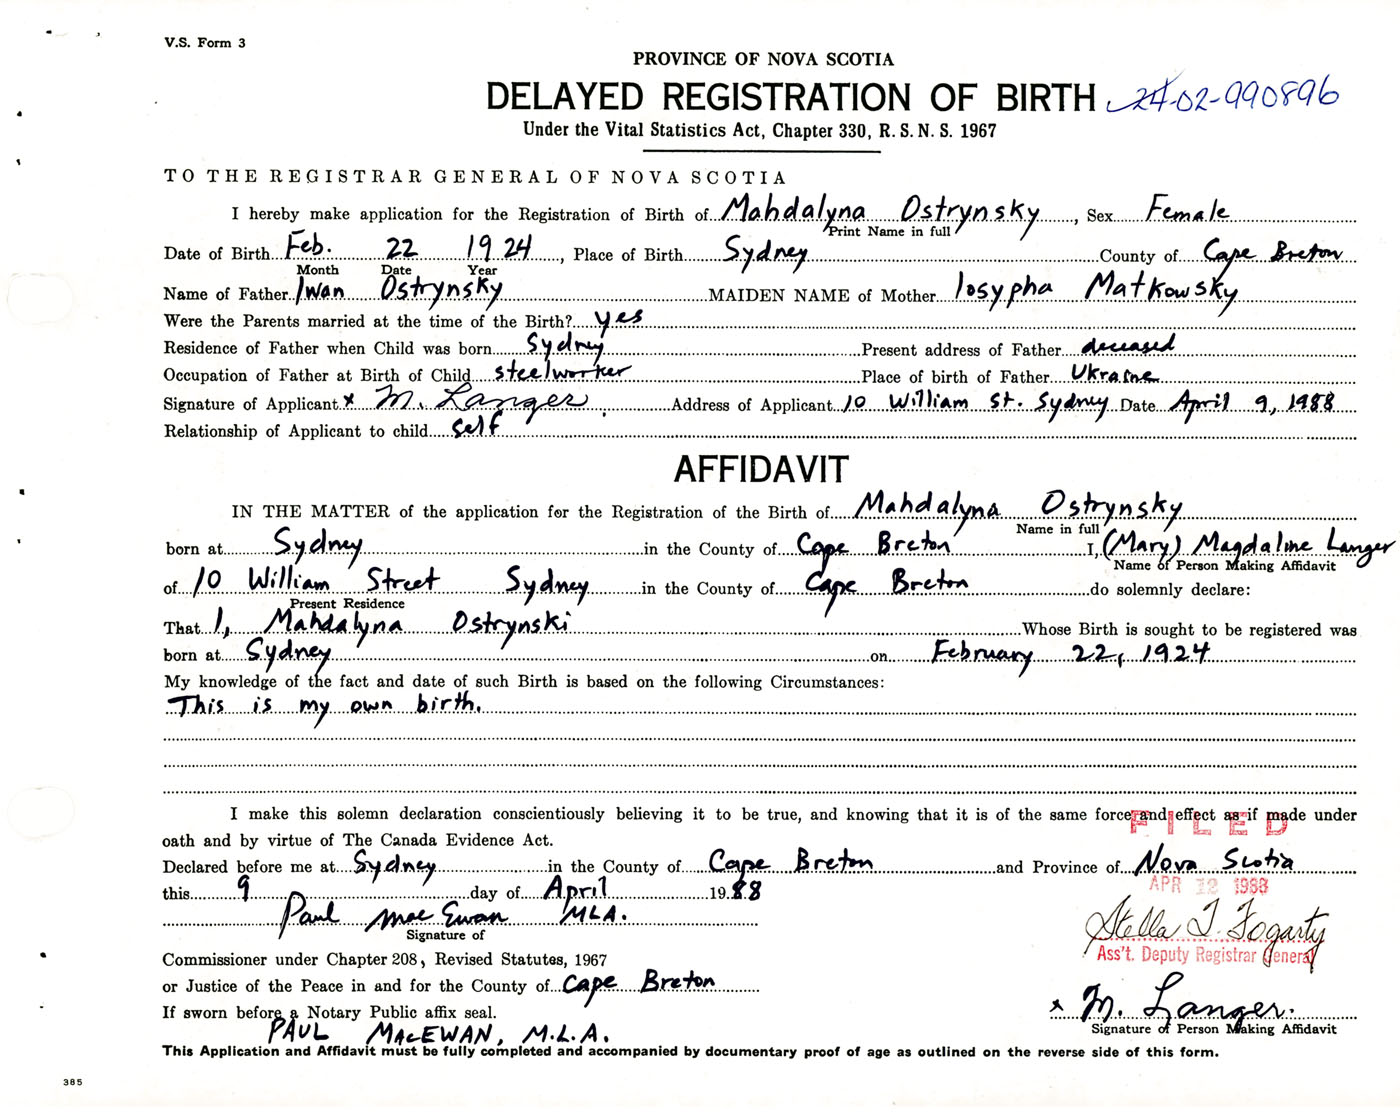 V.S. Form 3
PROVINCE OF NOVA SCOTIA
DELAYED REGISTRATION OF BIRTH 24-02-990896
Under the Vital Statistics Act, Chapter 330, R. S. N. S. 1967
TO THE REGISTRAR GENERAL OF NOVA SCOTIA
I hereby make application for the Registration of Birth of Mahdalyna Ostrynsky, Sex Female
Print Name in full
Date of Birth Feb. 22 1924, Place of Birth Sydney County of Cape Breton
Month Date Year
Name of Father Iwan Ostrynsky MAIDEN NAME of Mother Iosypha Matkowsky
Were the Parents married at the time of the Birth? yes
Residence of Father when Child was born Sydney Present address of Father deceased
Occupation of Father at Birth of Child steelworker Place of birth of Father Ukraine
Signature of Applicant x M. Langer Address of Applicant 10 William St. Sydney Date April 9, 1988
Relationship of Applicant to child self
AFFIDAVIT
IN THE MATTER of the application for the Registration of the Birth of Mahdalyna Ostrynsky
Name in full
born at Sydney in the County of Cape Breton I, (Mary) Magdaline Langer
Name of Person Making Affidavit
of 10 William Street Sydney in the County of Cape Breton do solemnly declare:
Present Residence
That I, Mahdalyna Ostrynski Whose Birth is sought to be registered was
born at Sydney on February 22, 1924
My knowledge of the fact and date of such Birth is based on the following Circumstances:
This is my own birth.
I make this solemn declaration conscientiously believing it to be true, and knowing that it is of the same force and effect as if made under
FILED
oath and by virtue of The Canada Evidence Act.
Declared before me at Sydney in the County of Cape Breton and Province of Nova Scotia
APR 12 1988
this 9 day of April 1988
Paul MacEwan MLA.
Signature of
Stella T. Fogarty
Ass't. Deputy Registrar General
Commissioner under Chapter 208, Revised Statutes, 1967
or Justice of the Peace in and for the County of Cape Breton
x M. Langer.
Signature of Person Making Affidavit
If sworn before a Notary Public affix seal.
PAUL MacEWAN, M.L.A.
This Application and Affidavit must be fully completed and accompanied by documentary proof of age as outlined on the reverse side of this form.
385